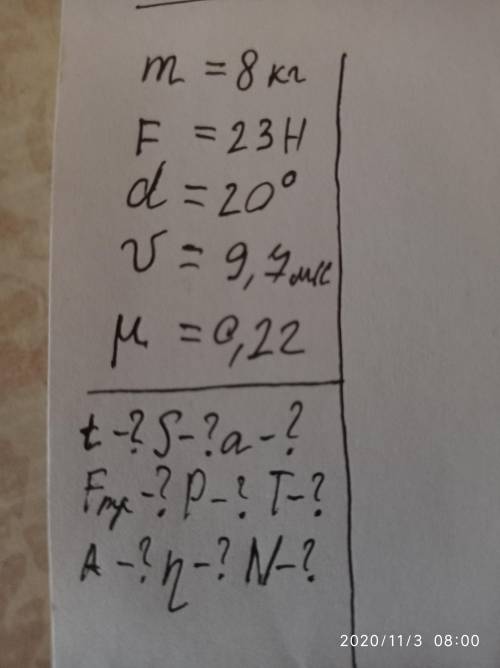 m = 8 кг
F = 23 Н
α = 20°
v = 9,7 м/с
μ = 0,22
t - ? S - ? a - ?
Fтр - ? P - ? T - ?
A - ? η - ? N - ?
2020/11/3 08:00